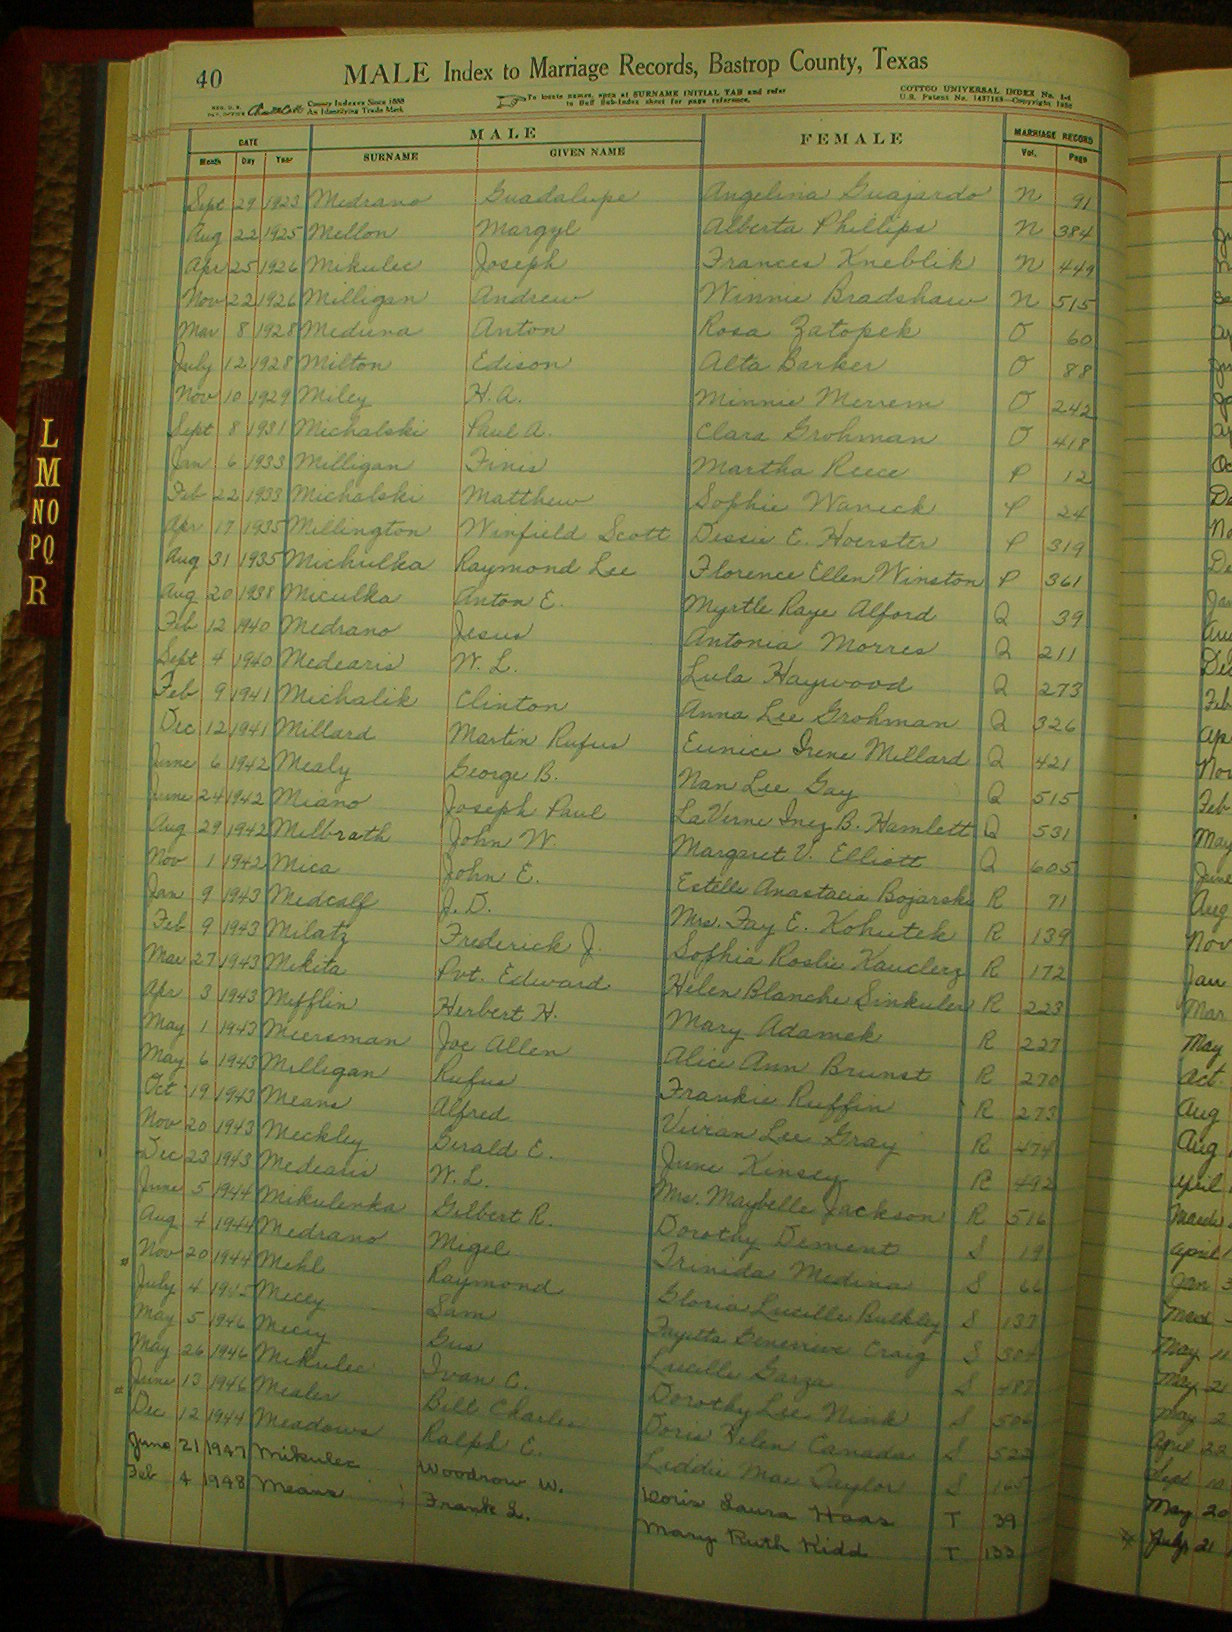 40 MALE Index to Marriage Records, Bastrop County, Texas
REG. U.S. PAT. OFFICE County Indexes Since 1888 An Identifying Trade Mark
To locate names, open at SURNAME INITIAL TAB and refer to Buff Sub-Index sheet for page reference.
COTTCO UNIVERSAL INDEX No. 1-4
U.S. Patent No. 1437169—Copyright 1888
DATE MALE FEMALE MARRIAGE RECORD
Month Day Year SURNAME GIVEN NAME Vol. Page
Sept 29 1923 Medrano Guadalupe Angelina Guajardo N 91
Aug 22 1925 Mellon Margyl Alberta Phillips N 384
Apr 25 1926 Mikulec Joseph Frances Kneblik N 449
Nov 22 1926 Milligan Andrew Winnie Bradshaw N 515
Mar 8 1928 Meduna Anton Rosa Zatopek O 60
July 12 1928 Milton Edison Alta Barker O 88
Nov 10 1929 Miley H.A. Minnie Merrem O 242
Sept 8 1931 Michalski Paul A. Clara Grohman O 418
Jan 6 1933 Milligan Finis Martha Reece P 12
Feb 22 1933 Michalski Matthew Sophie Waneck P 24
Apr 17 1935 Millington Winfield Scott Dessie E. Hoerster P 319
Aug 31 1935 Michulka Raymond Lee Florence Ellen Winston P 361
Aug 20 1938 Miculka Anton E. Myrtle Raye Alford Q 39
Feb 12 1940 Medrano Jesus Antonia Morres Q 211
Sept 4 1940 Medearis W. L. Lula Haywood Q 273
Feb 9 1941 Michalik Clinton Anna Lee Grohman Q 326
Dec 12 1941 Millard Martin Rufus Eunice Irene Millard Q 421
June 6 1942 Mealy George B. Nan Lee Gay Q 515
June 24 1942 Miano Joseph Paul LaVerne Inez B. Hamlett Q 531
Aug 29 1942 Milbrath John W. Margaret V. Elliott Q 605
Nov 1 1942 Mica John E. Estelle Anastacia Bojarski R 71
Jan 9 1943 Medcalf J. D. Mrs. Fay E. Kohutek R 139
Feb 9 1943 Milatz Frederick J. Sophia Roslie Kauclerz R 172
Mar 27 1943 Mikita Pvt. Edward Helen Blanche Sinkulen R 223
Apr 3 1943 Mifflin Herbert H. Mary Adamek R 227
May 1 1943 Meersman Joe Allen Alice Ann Brunst R 270
May 6 1943 Milligan Rufus Frankie Ruffin R 273
Oct 19 1943 Means Alfred Vivian Lee Gray R 474
Nov 20 1943 Meckley Gerald E. June Kinsey R 492
Dec 23 1943 Medearis W. L. Mrs. Maybelle Jackson R 516
June 5 1944 Mikulenka Gilbert R. Dorothy Dement S 19
Aug 4 1944 Medrano Migel Trinida Medina S 66
Nov 20 1944 Mehl Raymond Gloria Lucille Bulkley S 137
July 4 1945 Micey Sam Fayetta Genevieve Craig S 304
May 5 1946 Gus Lucille Garza S 487
May 26 1946 Mikulec Ivan C. Dorothy Lee Nink S 506
June 13 1946 Mealer Bill Charles Doris Helen Canada S 522
Dec 12 1944 Meadows Ralph E. Liddie Mae Taylor S 165
June 21 1947 Mikulec Woodrow W. Doris Laura Haas T 39
Feb 4 1948 Means Frank L. Mary Ruth Kidd T 133
L
M
NO
PQ
R